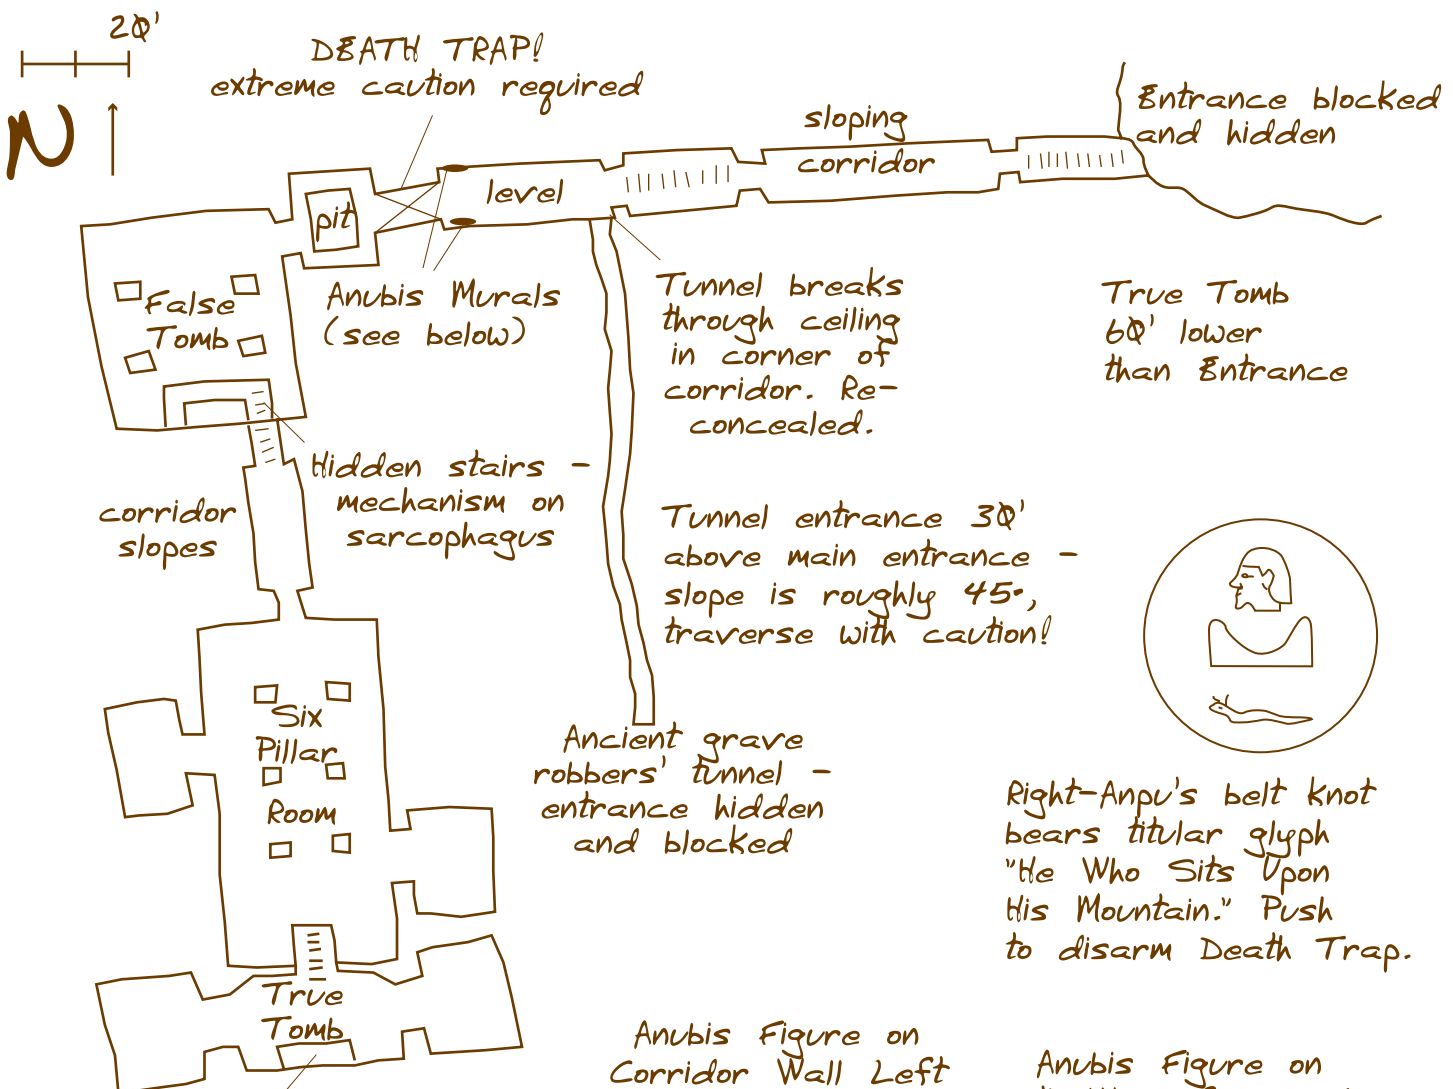 20'
DEATH TRAP!
extreme caution required
N
sloping
corridor
Entrance blocked
and hidden
level
pit
False
Tomb
Anubis Murals
(see below)
Tunnel breaks
through ceiling
in corner of
corridor. Re-
concealed.
True Tomb
60' lower
than Entrance
Hidden stairs -
mechanism on
sarcophagus
corridor
slopes
Tunnel entrance 30'
above main entrance -
slope is roughly 45°,
traverse with caution!
Six
Pillar
Room
Ancient grave
robbers' tunnel -
entrance hidden
and blocked
Right-Anpu's belt knot
bears titular glyph
"He Who Sits Upon
His Mountain." Push
to disarm Death Trap.
True
Tomb
Anubis Figure on
Corridor Wall Left
Anubis Figure on